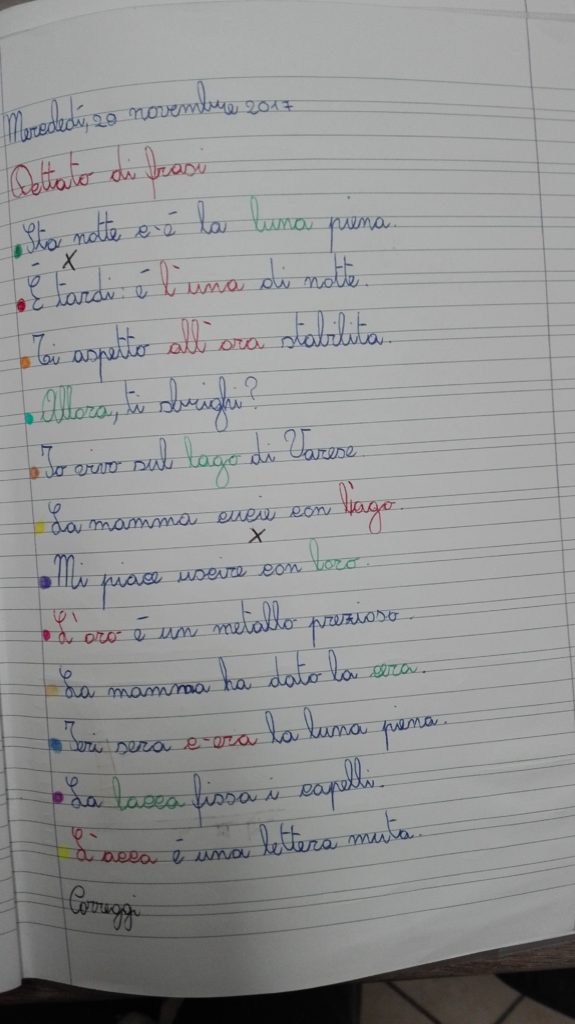 Merededì, 29 novembre 2017
Dettato di frasi
Sta notte c'è la luna piena.
È tardi: è l'una di notte.
Ti aspetto all'ora stabilita.
Allora, ti sbrighi?
Io vivo sul lago di Varese.
La mamma cucie con l'ago.
Mi piace uscire con loro.
L'oro è un metallo prezioso.
La mamma ha dato la cera.
Ieri sera c'era la luna piena.
La lacca fissa i capelli.
L'acca è una lettera muta.
Correggi